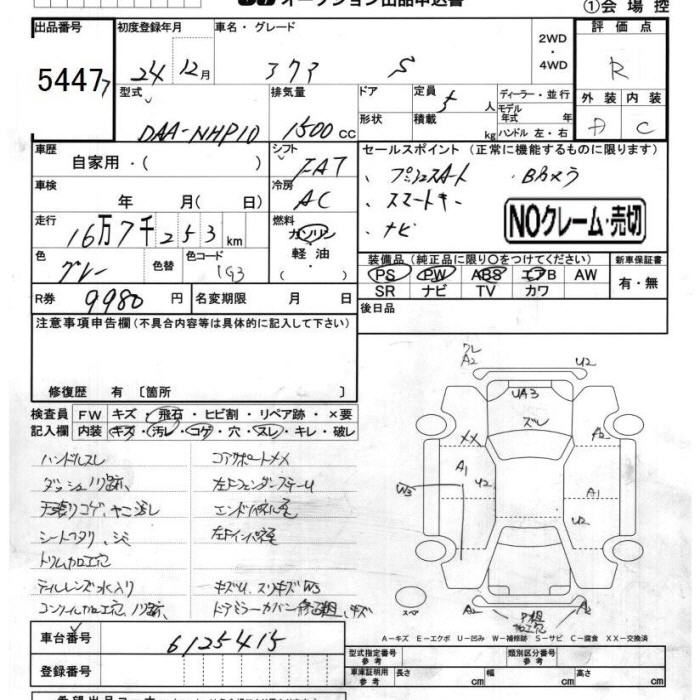 オークション出品申込書
①会場控
出品番号 初度登録年月 車名・グレード 評価点
54477 24 12月 アクア S 2WD ・ 4WD R
型式 排気量 ドア 定員 ディーラー・並行 外装 内装
DAA-NHP10 1500cc 形状 積載 5人 kg モデル年式 年式 ハンドル 左・右 D C
車歴 自家用・( ) シフト FAT セールスポイント (正常に機能するものに限ります)
車検 年 月( 日) 冷房 AC ・プッシュスタート ・Bカメラ
・スマートキー
・ナビ
NOクレーム・売切
走行 16万7千253km 燃料 ガソリン・軽油・( )
色 グレー 色替 色コード 1G3
装備品 (純正品に限り○をつけてください) 新車保証書
PS PW ABS エアB AW 有・無
SR ナビ TV カワ
R券 9980円 名変期限 月 日 後日品
注意事項申告欄 (不具合内容等は具体的に記入して下さい)
修復歴 有 [箇所 ]
検査員 FW キズ・飛石・ヒビ割・リペア跡・×要
記入欄 内装 キズ・汚レ・コゲ・穴・スレ・キレ・破レ
ハンドルスレ コアサポートXX
ダッシュノリ跡、 左FフェンダーステーU
天張りコゲ、ヤニ汚レ
シートヘタリ、シミ 左Fインパネ歪
トリム加工穴
テイルレンズ水入り キズU、スリキズW3
コンソール加工穴、ノリ跡 ドアミラーカバー修正粗、キズ
A2 U2
UA3
ズレ
XX A2
A1 U2 A1
W3
U2
スペ A2 A2
P粗
加工穴
A-キズ E-エクボ U-凹み W-補修跡 S-サビ C-腐食 XX-交換済
車台番号 6125415
登録番号
型式指定番号 参考 類別区分番号 参考
車庫証明用 参考 長さ cm 幅 cm 高さ cm
希望出品コーナー